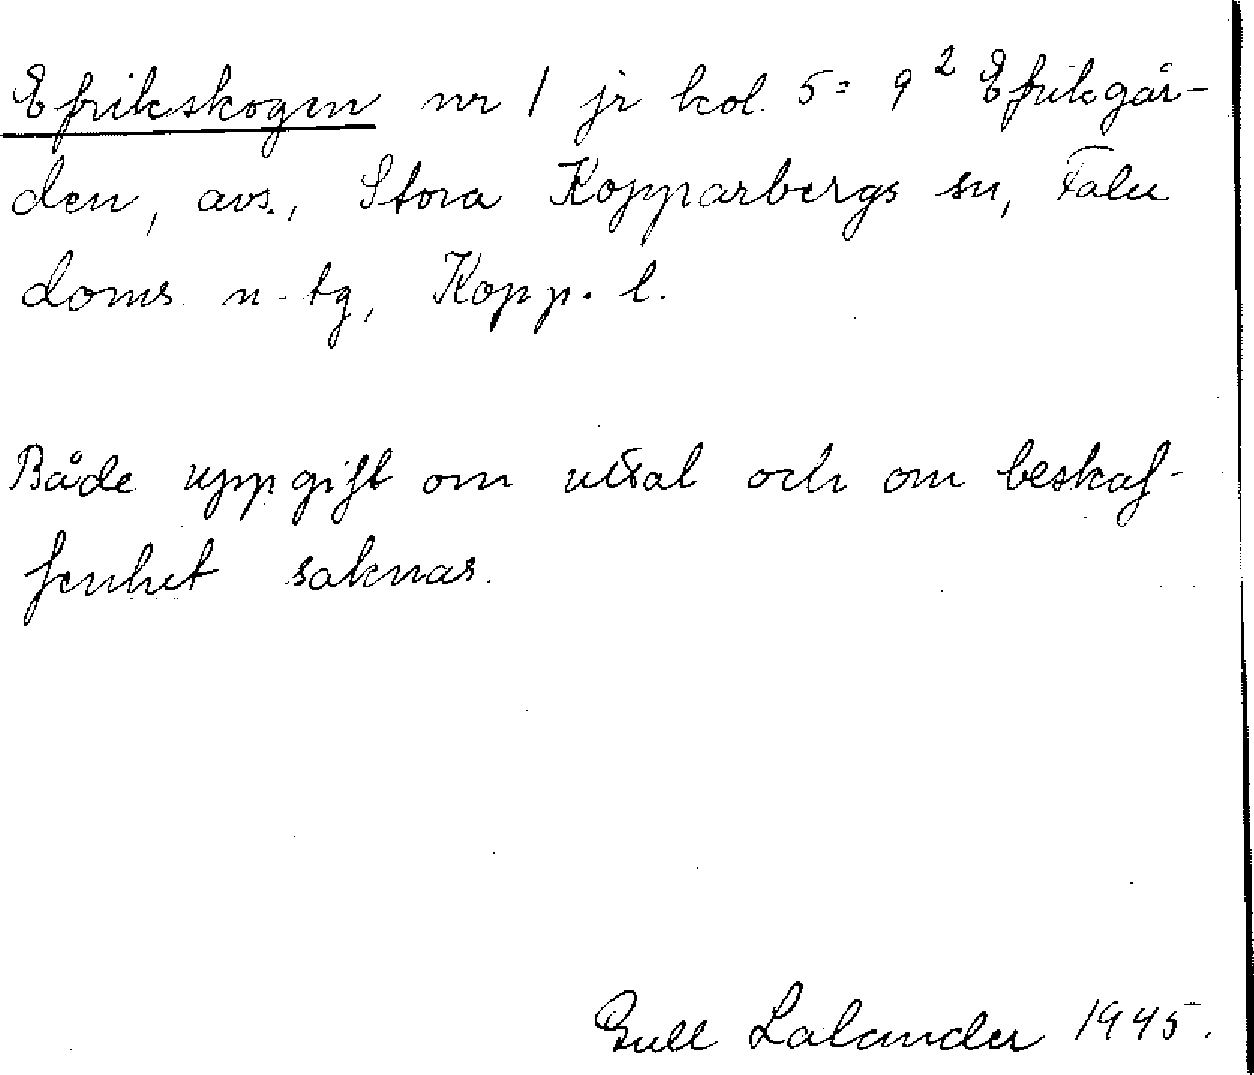 Efrikskogen nr 1 jr kol. 5 = 9² Efrikgår-
den, avs., Stora Kopparbergs sn, Falu
doms. n. tg, Kopp. l.
Både uppgift om uttal och om beskaf-
fenhet saknas.
Gull Lalander 1945.